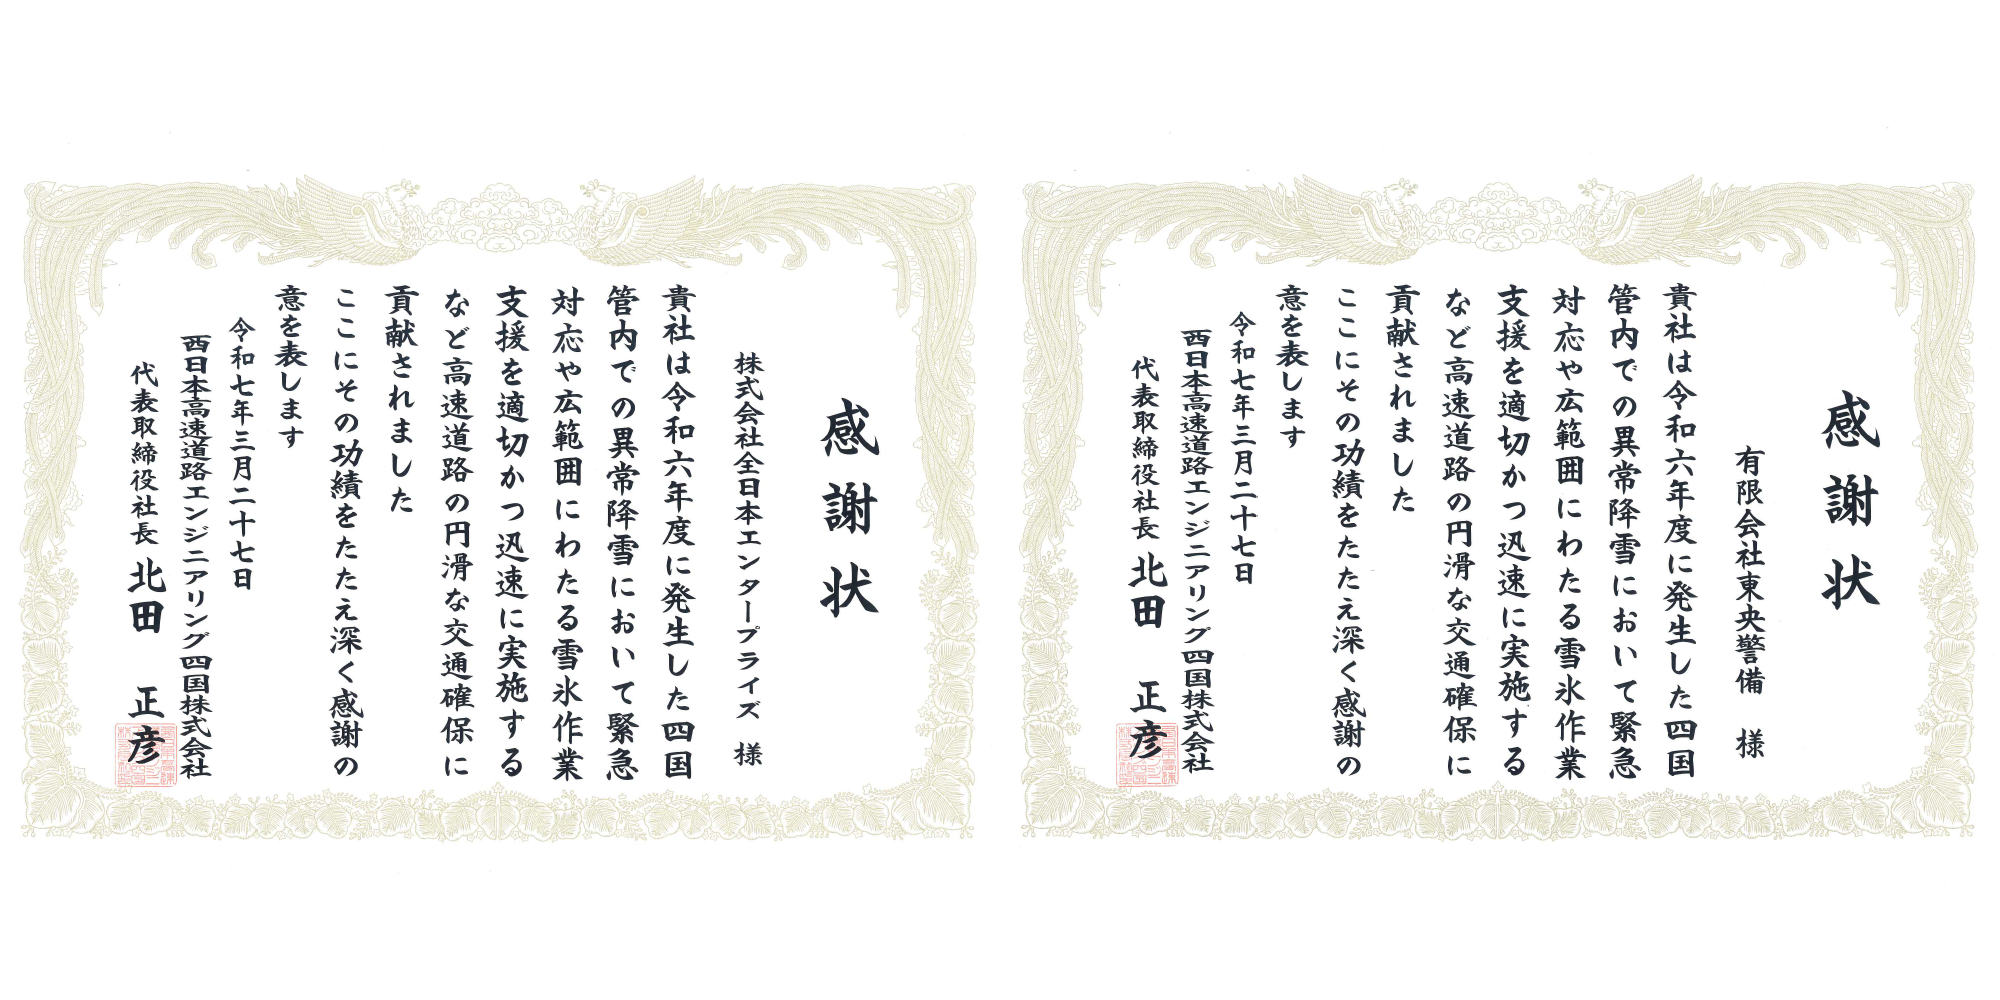 感謝状
株式会社全日本エンタープライズ 様
貴社は令和六年度に発生した四国
管内での異常降雪において緊急
対応や広範囲にわたる雪氷作業
支援を適切かつ迅速に実施する
など高速道路の円滑な交通確保に
貢献されました
ここにその功績をたたえ深く感謝の
意を表します
令和七年三月二十七日
西日本高速道路エンジニアリング四国株式会社
代表取締役社長 北田 正彦
感謝状
有限会社東央警備 様
貴社は令和六年度に発生した四国
管内での異常降雪において緊急
対応や広範囲にわたる雪氷作業
支援を適切かつ迅速に実施する
など高速道路の円滑な交通確保に
貢献されました
ここにその功績をたたえ深く感謝の
意を表します
令和七年三月二十七日
西日本高速道路エンジニアリング四国株式会社
代表取締役社長 北田 正彦